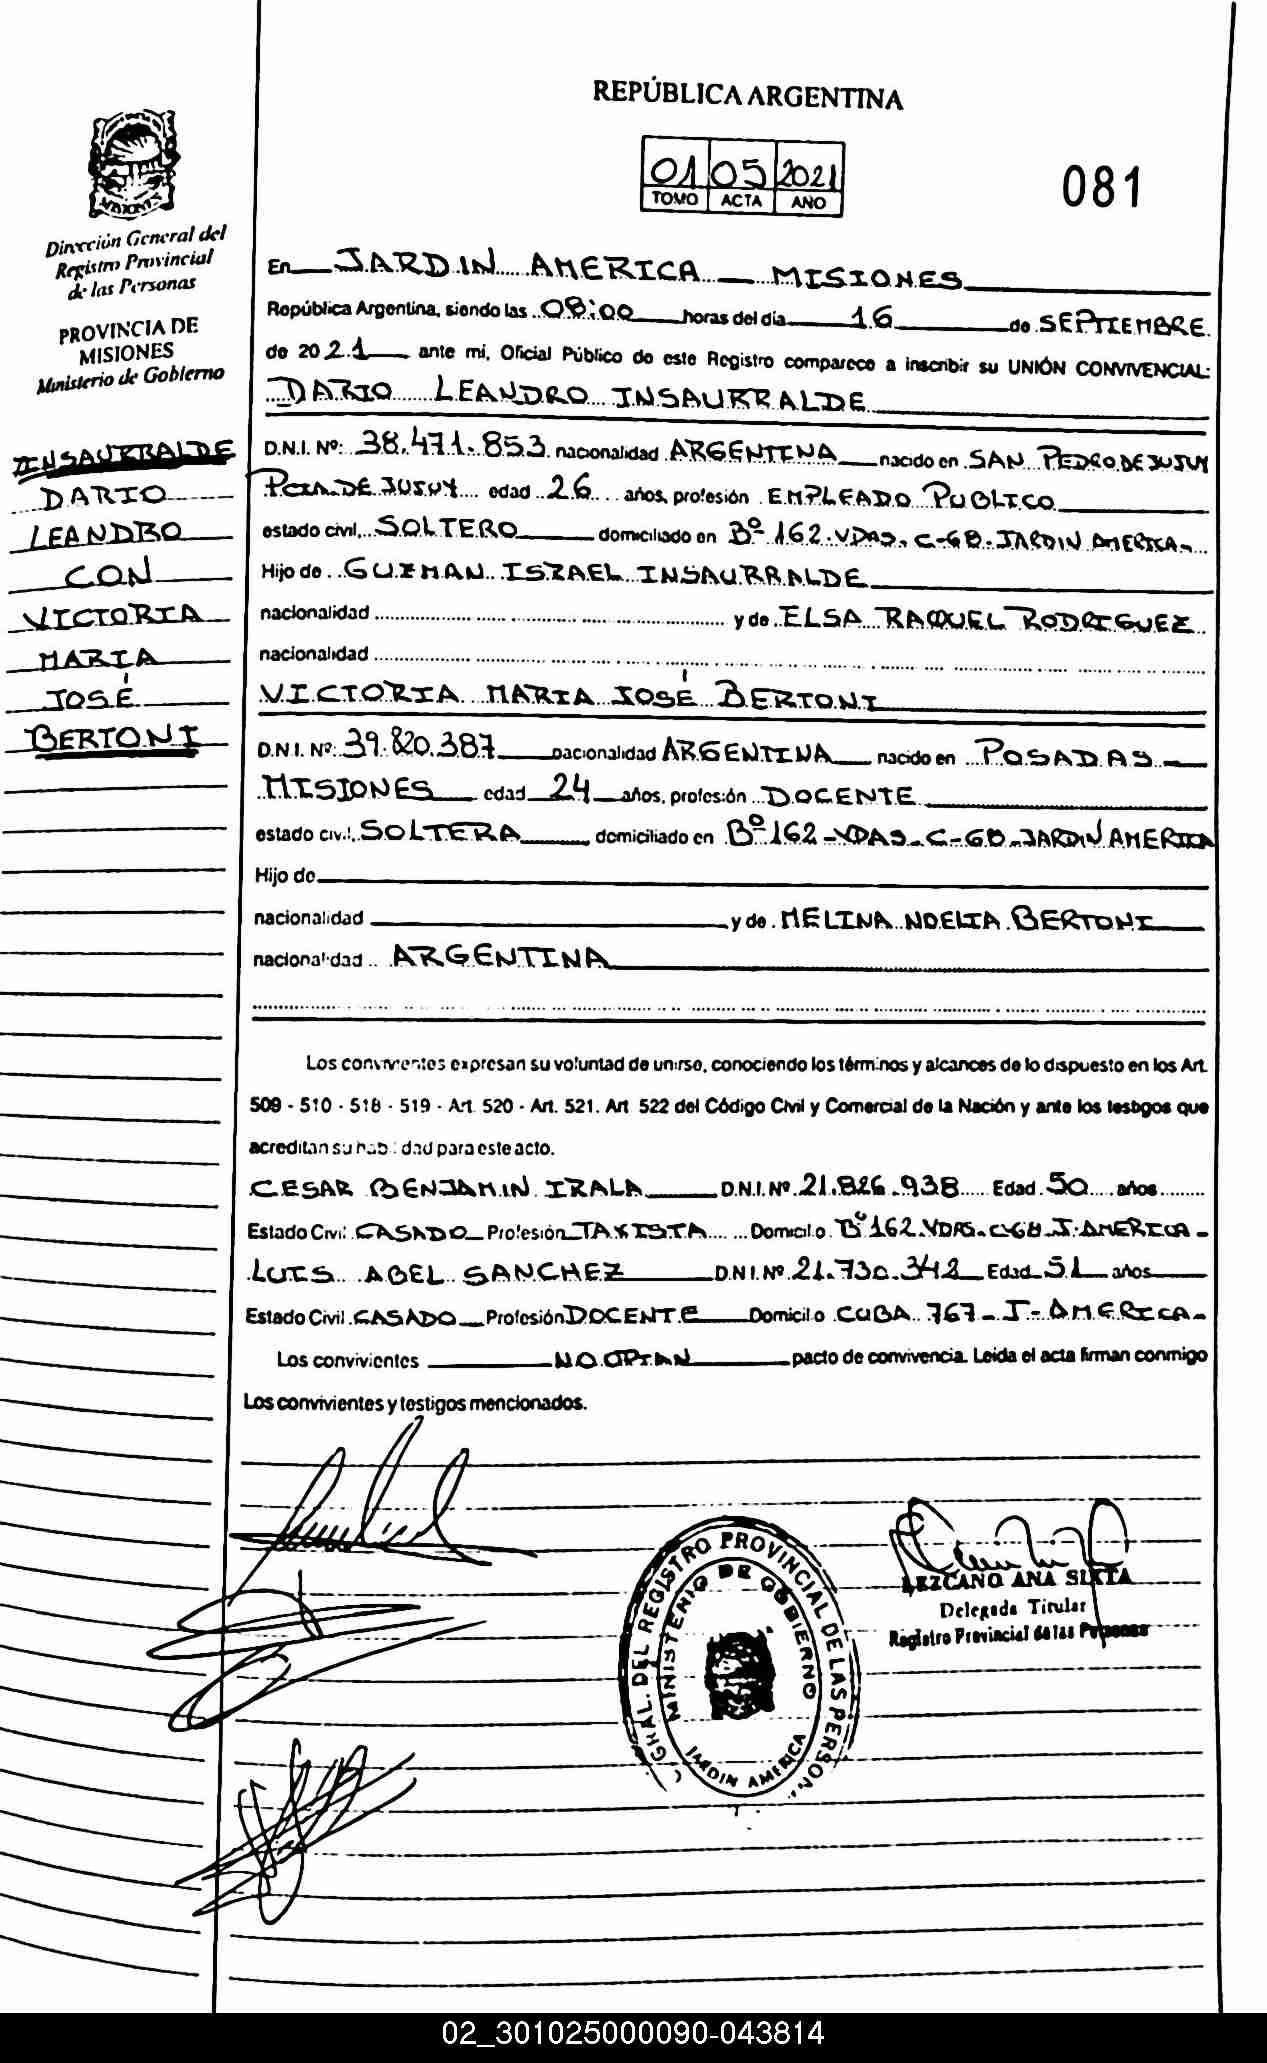 REPÚBLICA ARGENTINA
01 05 2021
TOMO ACTA AÑO
081
MISIONES
Dirección General del
Registro Provincial
de las Personas
PROVINCIA DE
MISIONES
Ministerio de Gobierno
INSAURRALDE
DARIO
LEANDRO
CON
VICTORIA
MARIA
JOSÉ
BERTONI
En JARDIN AMERICA MISIONES
República Argentina, siendo las 08:00 horas del día 16 de SEPTIEMBRE
de 2021 ante mí, Oficial Público de este Registro comparece a inscribir su UNIÓN CONVIVENCIAL:
DARIO LEANDRO INSAURRALDE
D.N.I. Nº: 38.471.853 nacionalidad ARGENTINA nacido en SAN PEDRO DE JUJUY
PCIA. DE JUJUY edad 26 años, profesión EMPLEADO PUBLICO
estado civil, SOLTERO domiciliado en Bº 162. VDAS. C-68- JARDIN AMERICA-
Hijo de GUZMAN ISRAEL INSAURRALDE
nacionalidad y de ELSA RAQUEL RODRIGUEZ
nacionalidad
VICTORIA MARIA JOSÉ BERTONI
D.N.I. Nº: 39.820.387 nacionalidad ARGENTINA nacido en POSADAS
MISIONES edad 24 años, profesión DOCENTE
estado civil, SOLTERA domiciliado en Bº 162-VDAS- C-68-JARDIN AMERICA
Hijo de
nacionalidad y de MELINA NOELIA BERTONI
nacionalidad ARGENTINA
Los convivientes expresan su voluntad de unirse, conociendo los términos y alcances de lo dispuesto en los Art.
509 - 510 - 518 - 519 - Art. 520 - Art. 521. Art 522 del Código Civil y Comercial de la Nación y ante los testigos que
acreditan su habilidad para este acto.
CESAR BENJAMIN IRALA D.N.I. Nº 21.826.938 Edad 50 años
Estado Civil CASADO Profesión TAXISTA Domicilio Bº 162. VDAS- C-68 J. AMERICA-
LUIS ABEL SANCHEZ D.N.I. Nº 21.730.342 Edad 51 años
Estado Civil CASADO Profesión DOCENTE Domicilio CUBA 767-J-AMERICA-
Los convivientes NO OPTAN pacto de convivencia. Leida el acta firman conmigo
Los convivientes y testigos mencionados.
GRAL. DEL REGISTRO PROVINCIAL DE LAS PERSON
MINISTERIO DE GOBIERNO
JARDIN AMERICA
LEZCANO ANA SIXTA
Delegada Titular
Registro Provincial de las Personas
02_301025000090-043814